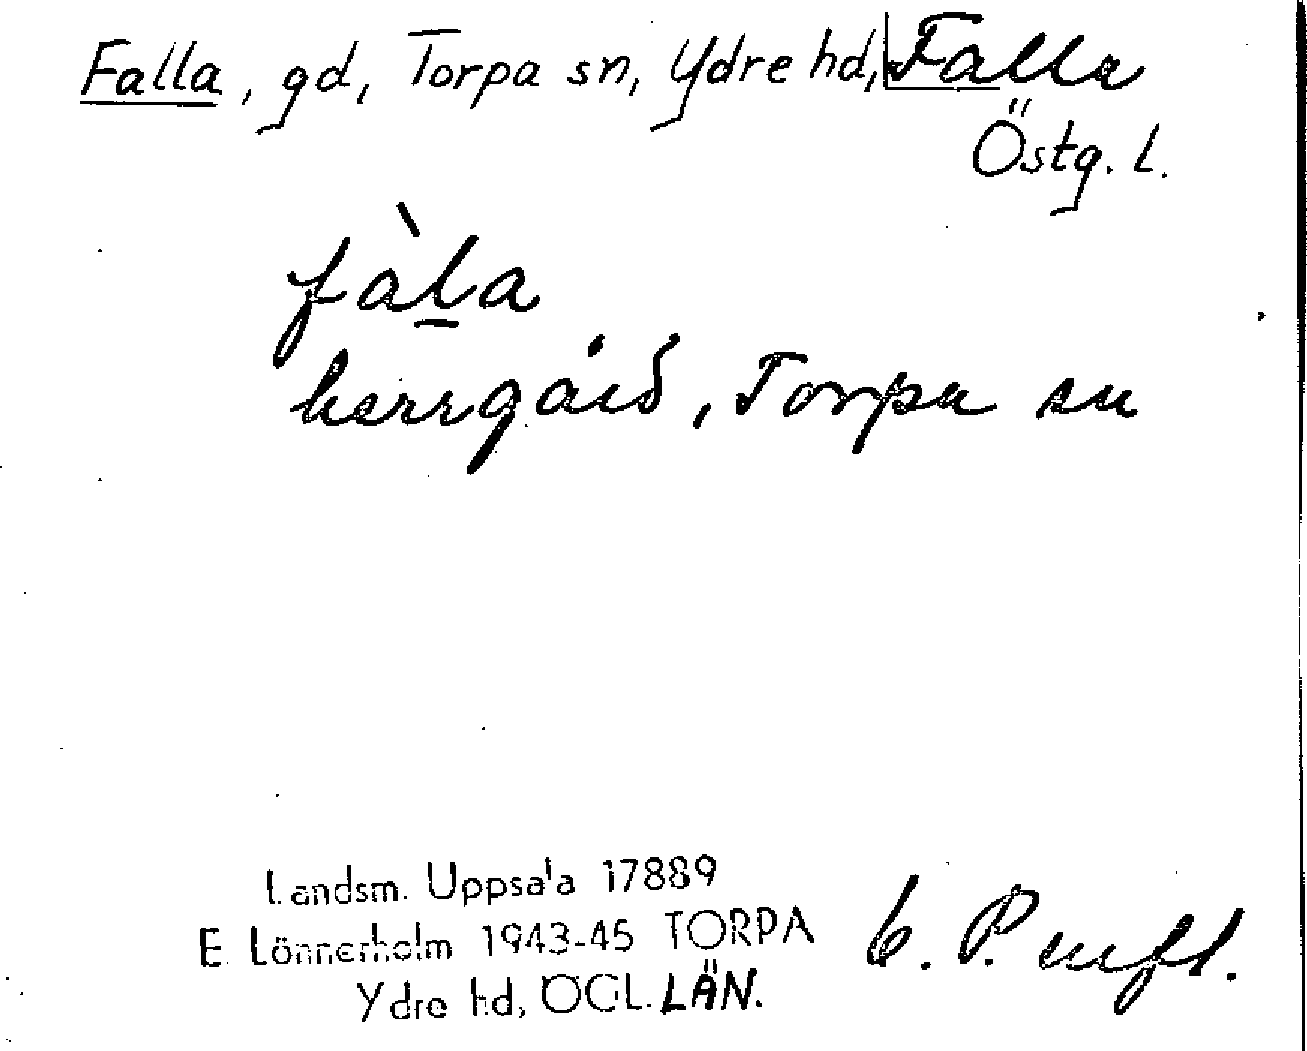 Falla, gd, Torpa sn, Ydre hd, Falla
Östg. l.
fàla
herrgård, Torpa sn
Landsm. Uppsala 17889
E. Lönnerholm 1943-45 TORPA
Ydre hd, ÖGL. LÄN.
C. P. mfl.